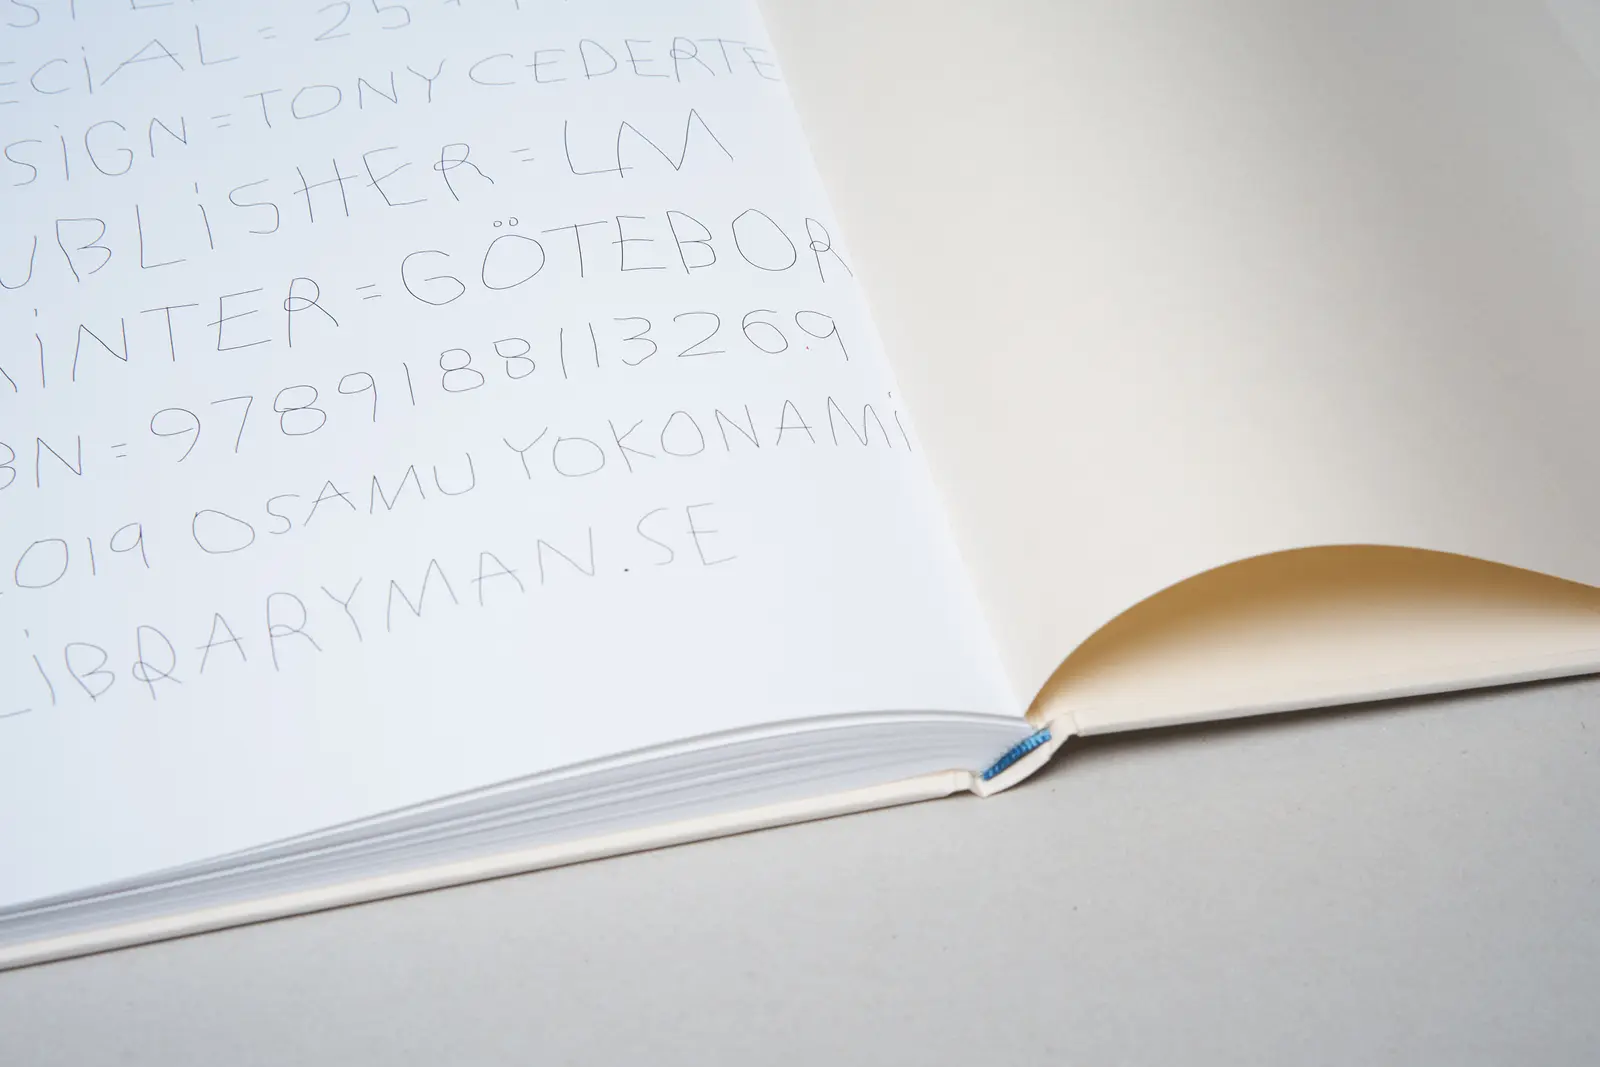 ECiAL = 25 +
SiGN = TONY CEDERTE
UBLiSHER = LM
iNTER = GÖTEBOR
BN = 9789188113269
019 OSAMU YOKONAMi
LiBRARYMAN.SE